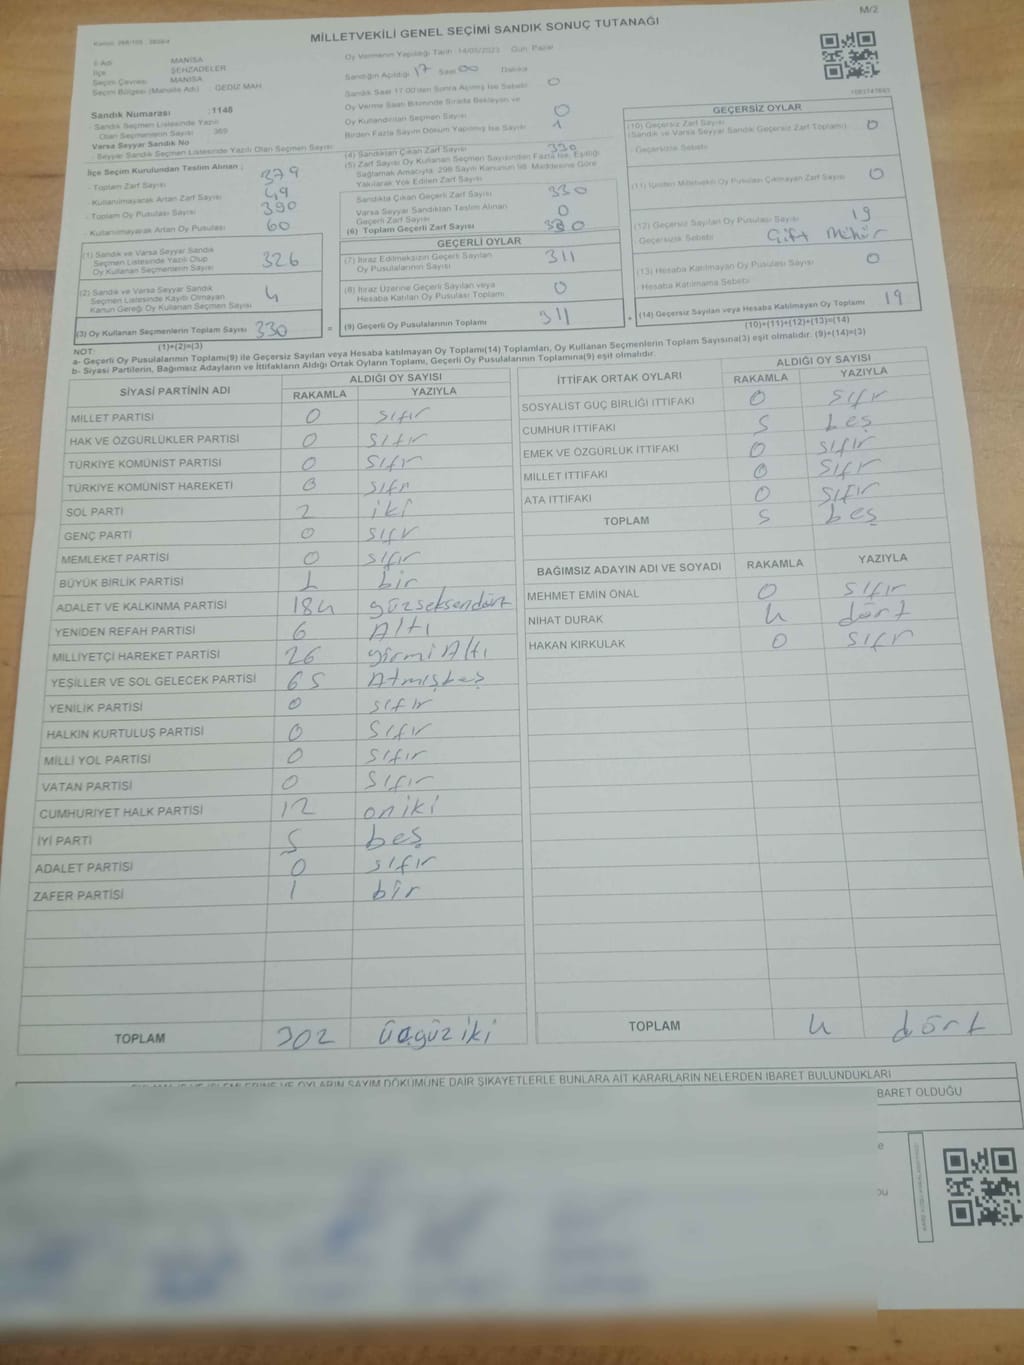 M/2
MİLLETVEKİLİ GENEL SEÇİMİ SANDIK SONUÇ TUTANAĞI
İl Adı MANİSA
İlçe ŞEHZADELER
Seçim Çevresi MANİSA
Seçim Bölgesi (Mahalle Adı) : GEDİZ MAH
Oy Vermenin Yapıldığı Tarih :14/05/2023 Gün: Pazar
Sandığın Açıldığı 17 Saat 00 Dakika
Sandık Saat 17:00'den Sonra Açılmış İse Sebebi 0
Oy Verme Saati Bitiminde Sırada Bekleyen ve
Oy Kullandırılan Seçmen Sayısı 0
Birden Fazla Sayım Döküm Yapılmış İse Sayısı 1
Sandık Numarası :1146
- Sandık Seçmen Listesinde Yazılı
Olan Seçmenlerin Sayısı 369
Varsa Seyyar Sandık No
- Seyyar Sandık Seçmen Listesinde Yazılı Olan Seçmen Sayısı
İlçe Seçim Kurulundan Teslim Alınan ;
- Toplam Zarf Sayısı 379
- Kullanılmayarak Artan Zarf Sayısı 49
- Toplam Oy Pusulası Sayısı 390
- Kullanılmayarak Artan Oy Pusulası 60
(1) Sandık ve Varsa Seyyar Sandık
Seçmen Listesinde Yazılı Olup
Oy Kullanan Seçmenlerin Sayısı 326
(2) Sandık ve Varsa Seyyar Sandık
Seçmen Listesinde Kayıtlı Olmayan
Kanun Gereği Oy Kullanan Seçmen Sayısı 4
(3) Oy Kullanan Seçmenlerin Toplam Sayısı 330
(1)+(2)=(3)
(4) Sandıktan Çıkan Zarf Sayısı 330
(5) Zarf Sayısı Oy Kullanan Seçmen Sayısından Fazla İse, Eşitliği
Sağlamak Amacıyla, 298 Sayılı Kanunun 98. Maddesine Göre
Yakılarak Yok Edilen Zarf Sayısı
Sandıkta Çıkan Geçerli Zarf Sayısı 330
Varsa Seyyar Sandıktan Teslim Alınan
Geçerli Zarf Sayısı 0
(6) Toplam Geçerli Zarf Sayısı 330
GEÇERLİ OYLAR
(7) İtiraz Edilmeksizin Geçerli Sayılan
Oy Pusulalarının Sayısı 311
(8) İtiraz Üzerine Geçerli Sayılan veya
Hesaba Katılan Oy Pusulası Toplamı 0
= (9) Geçerli Oy Pusulalarının Toplamı 311
GEÇERSİZ OYLAR
(10) Geçersiz Zarf Sayısı
(Sandık ve Varsa Seyyar Sandık Geçersiz Zarf Toplamı) 0
- Geçersizlik Sebebi
(11) İçinden Milletvekili Oy Pusulası Çıkmayan Zarf Sayısı 0
(12) Geçersiz Sayılan Oy Pusulası Sayısı 19
Geçersizlik Sebebi Çift Mühür
(13) Hesaba Katılmayan Oy Pusulası Sayısı 0
- Hesaba Katılmama Sebebi
+ (14) Geçersiz Sayılan veya Hesaba Katılmayan Oy Toplamı 19
(10)+(11)+(12)+(13)=(14)
NOT:
a- Geçerli Oy Pusulalarının Toplamı(9) ile Geçersiz Sayılan veya Hesaba katılmayan Oy Toplamı(14) Toplamları, Oy Kullanan Seçmenlerin Toplam Sayısına(3) eşit olmalıdır. (9)+(14)=(3)
b- Siyasi Partilerin, Bağımsız Adayların ve İttifakların Aldığı Ortak Oyların Toplamı, Geçerli Oy Pusulalarının Toplamına(9) eşit olmalıdır.
SİYASİ PARTİNİN ADI ALDIĞI OY SAYISI
RAKAMLA YAZIYLA
MİLLET PARTİSİ 0 sıfır
HAK VE ÖZGÜRLÜKLER PARTİSİ 0 sıfır
TÜRKİYE KOMÜNİST PARTİSİ 0 sıfır
TÜRKİYE KOMÜNİST HAREKETİ 0 sıfır
SOL PARTİ 2 iki
GENÇ PARTİ 0 sıfır
MEMLEKET PARTİSİ 0 sıfır
BÜYÜK BİRLİK PARTİSİ 1 bir
ADALET VE KALKINMA PARTİSİ 184 yüzseksendört
YENİDEN REFAH PARTİSİ 6 Altı
MİLLİYETÇİ HAREKET PARTİSİ 26 yirmiAltı
YEŞİLLER VE SOL GELECEK PARTİSİ 65 Atmışbeş
YENİLİK PARTİSİ 0 sıfır
HALKIN KURTULUŞ PARTİSİ 0 sıfır
MİLLİ YOL PARTİSİ 0 sıfır
VATAN PARTİSİ 0 sıfır
CUMHURİYET HALK PARTİSİ 12 oniki
İYİ PARTİ 5 beş
ADALET PARTİSİ 0 sıfır
ZAFER PARTİSİ 1 bir
TOPLAM 302 üçyüz iki
İTTİFAK ORTAK OYLARI ALDIĞI OY SAYISI
RAKAMLA YAZIYLA
SOSYALİST GÜÇ BİRLİĞİ İTTİFAKI 0 sıfır
CUMHUR İTTİFAKI 5 beş
EMEK VE ÖZGÜRLÜK İTTİFAKI 0 sıfır
MİLLET İTTİFAKI 0 sıfır
ATA İTTİFAKI 0 sıfır
TOPLAM 5 beş
BAĞIMSIZ ADAYIN ADI VE SOYADI RAKAMLA YAZIYLA
MEHMET EMİN ÖNAL 0 sıfır
NİHAT DURAK 4 dört
HAKAN KIRKULAK 0 sıfır
TOPLAM 4 dört
OYLARIN SAYIM DÖKÜMÜNE DAİR ŞİKAYETLERLE BUNLARA AİT KARARLARIN NELERDEN İBARET BULUNDUKLARI
İBARET OLDUĞU